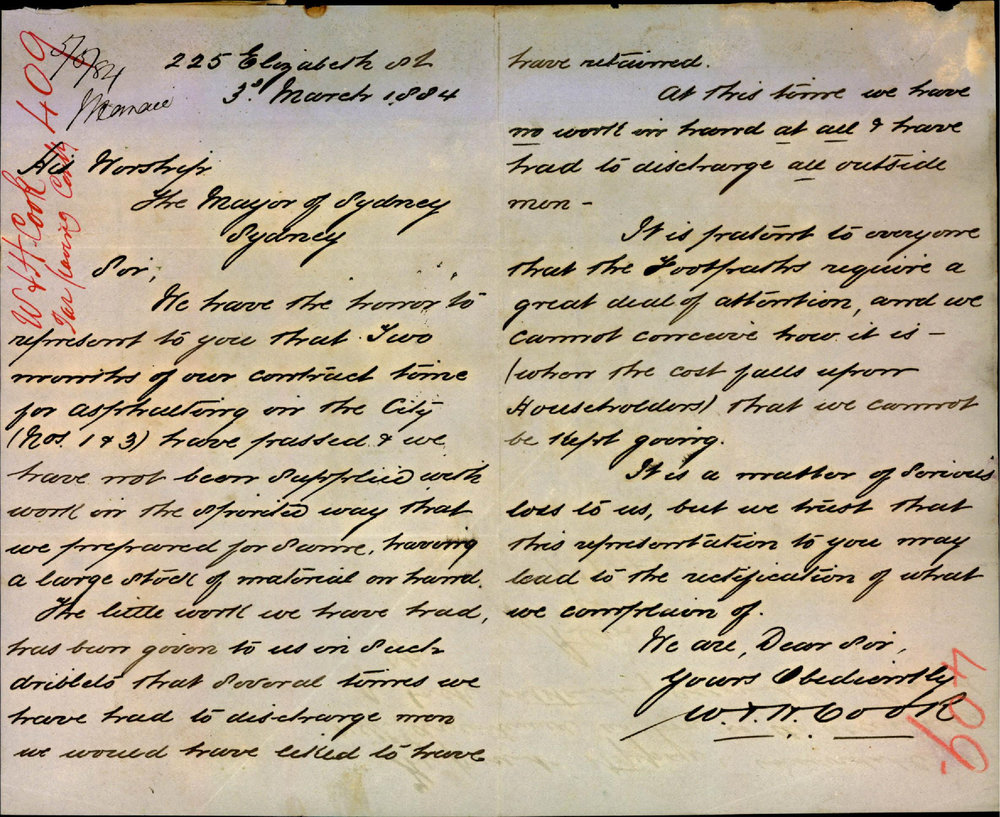 225 Elizabeth St
3d. March 1884
His Worship
The Mayor of Sydney
Sydney
Sir,
We have the honor to
represent to you that Two
months of our contract time
for asphalting in the City
(Nos. 1 & 3) have passed & we
have not been supplied with
work in the spirited way that
we prepared for same, having
a large stock of material on hand.
The little work we have had,
has been given to us in such
driblets that several times we
have had to discharge men
we would have liked to have
have retained.
At this time we have
no work in hand at all & have
had to discharge all outside
men -
It is patent to everyone
that the Footpaths require a
great deal of attention, and we
cannot conceive how it is -
(when the cost falls upon
Householders) that we cannot
be kept going.
It is a matter of serious
loss to us, but we trust that
this representation to you may
lead to the rectification of what
we complain of.
We are, Dear Sir,
Yours Obediently
W. & H. Cook
409
5/3/84
W & H Cook
Tar paving
409